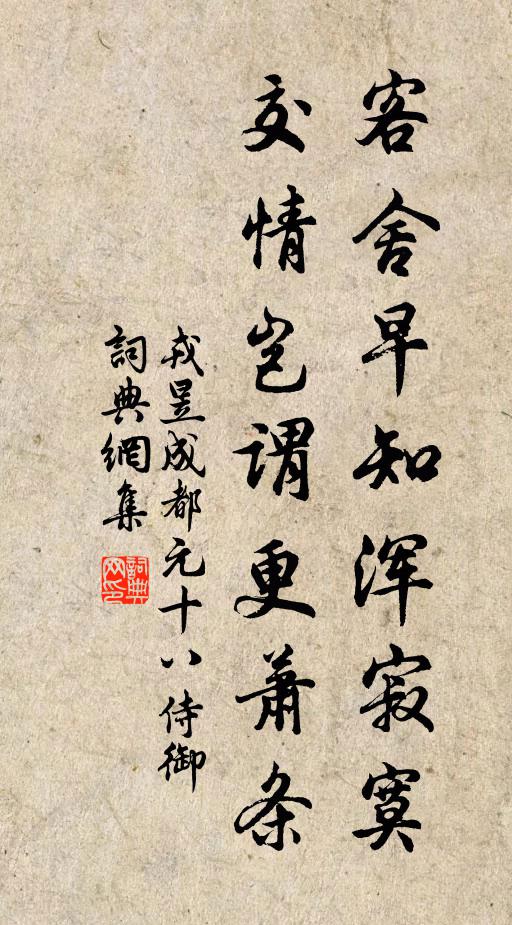 客舍早知浑寂寞
交情岂谓更萧条
戎昱成都元十八侍御
詞典網集
詞典网印